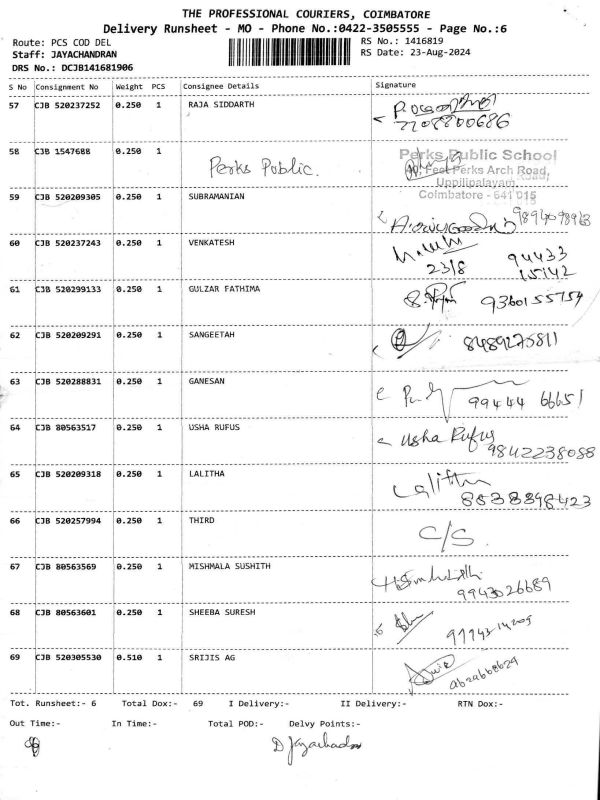 THE PROFESSIONAL COURIERS, COIMBATORE
Delivery Runsheet - MO - Phone No.:0422-3505555 - Page No.:6
Route: PCS COD DEL
RS No.: 1416819
Staff: JAYACHANDRAN
RS Date: 23-Aug-2024
DRS No.: DCJB141681906
S No Consignment No Weight PCS Consignee Details Signature
57 CJB 520237252 0.250 1 RAJA SIDDARTH
2208800686
58 CJB 1547688 0.250 1 Perks Public.
Perks Public School
Feet Perks Arch Road,
Uppilipalayam
Coimbatore - 641 015
59 CJB 520209305 0.250 1 SUBRAMANIAN
60 CJB 520237243 0.250 1 VENKATESH
23/8 94433
15142
61 CJB 520299133 0.250 1 GULZAR FATHIMA
9360155754
62 CJB 520209291 0.250 1 SANGEETAH
8489275811
63 CJB 520288831 0.250 1 GANESAN
99444 66651
64 CJB 80563517 0.250 1 USHA RUFUS
Usha Rufus
9842238088
65 CJB 520209318 0.250 1 LALITHA
Lalitha
8838398423
66 CJB 520257994 0.250 1 THIRD
C/S.
67 CJB 80563569 0.250 1 MISHMALA SUSHITH
9943026689
68 CJB 80563601 0.250 1 SHEEBA SURESH
69 CJB 520305530 0.510 1 SRIJIS AG
Tot. Runsheet:- 6 Total Dox:- 69 I Delivery:- II Delivery:- RTN Dox:-
Out Time:- In Time:- Total POD:- Delvy Points:-
D Jayachadra